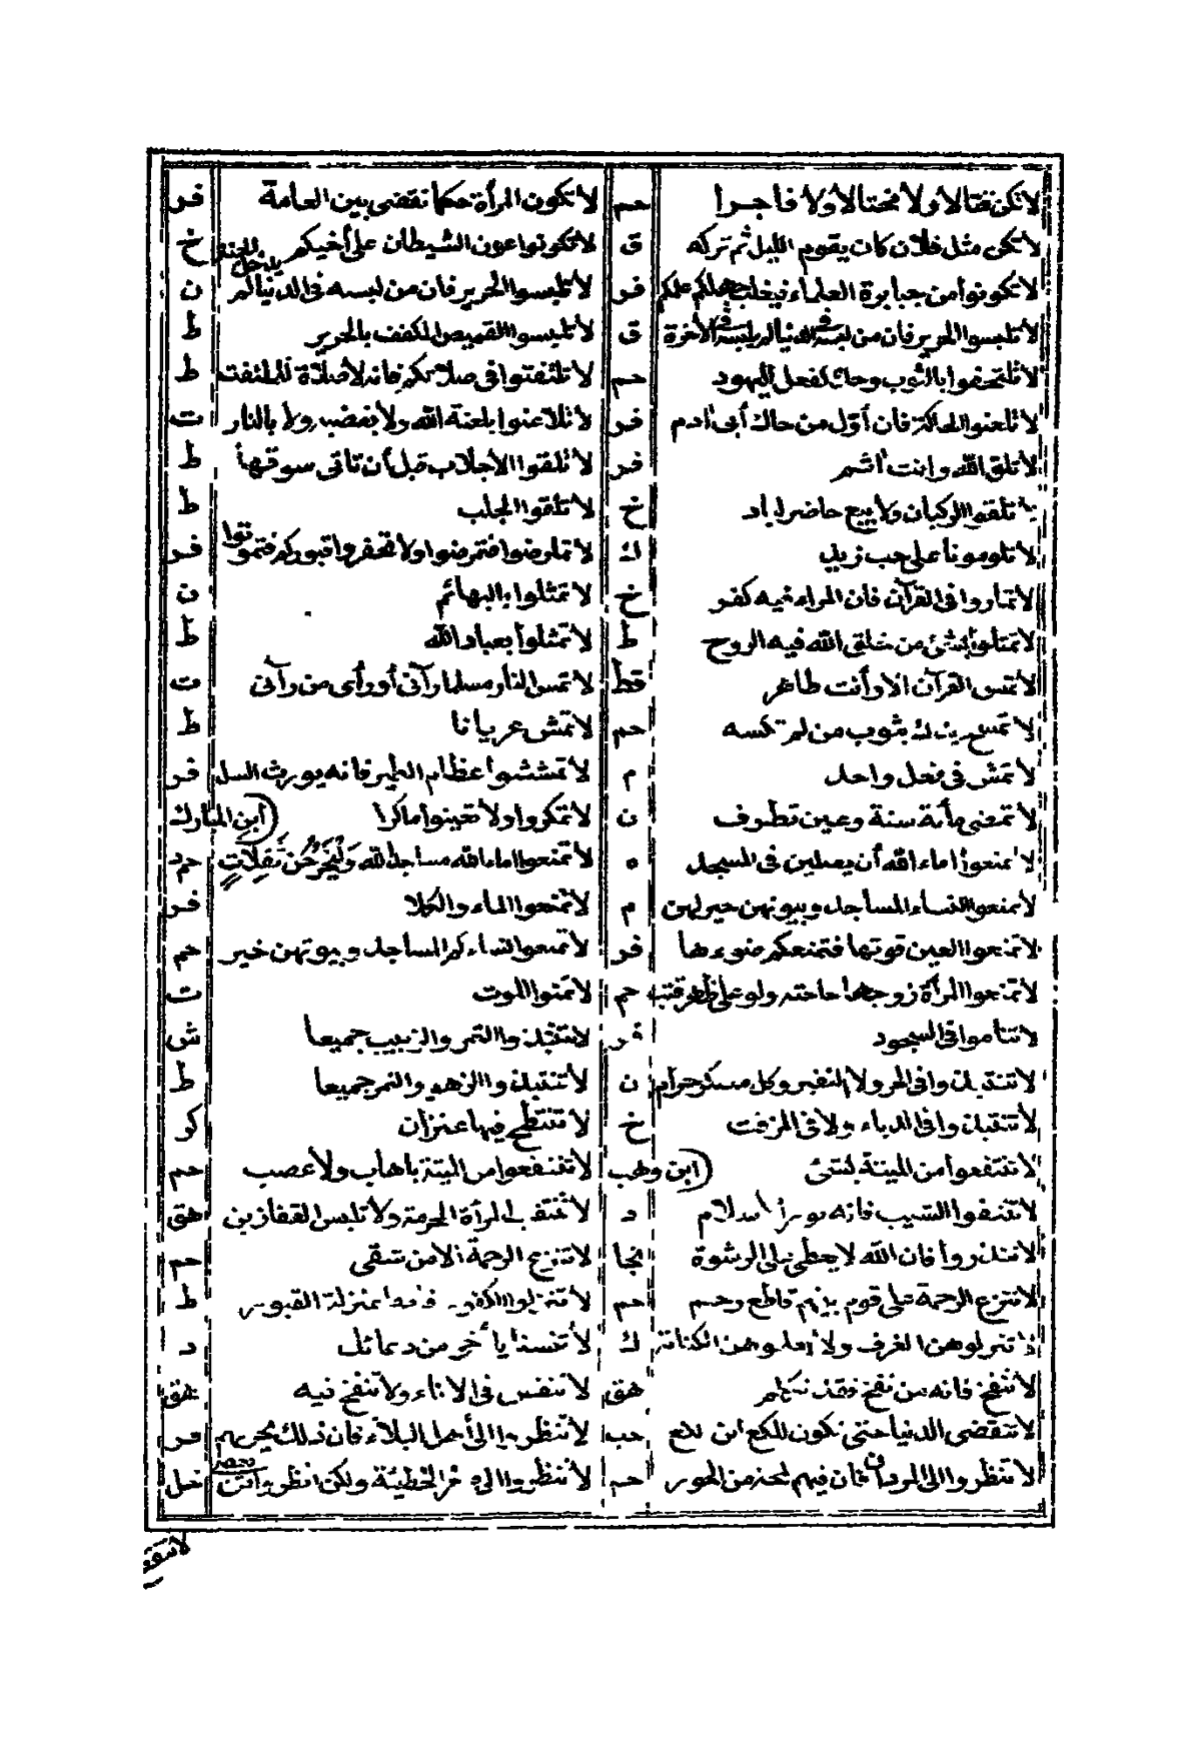 لا تكن فتانا ولا مختالا ولا فاجرا حم لا تكون المرأة حكما تقضى بين العامة فر
لا تكن مثل فلان كان يقوم الليل ثم تركه ق لا تكونوا عون الشيطان على أخيكم خ
لا تكونوا من جبابرة العلماء فيغلب جهلكم علمكم فر لا تلبسوا الحرير فان من لبسه فى الدنيا لم يدخل الجنة ن
لا تلبسوا الحرير فان من لبسه فى الدنيا لم يلبسه فى الآخرة ق لا تلبسوا القميص المكفف بالحرير ط
لا تلتحفوا بالثوب وحده كفعل اليهود حم لا تلتفتوا فى صلاتكم فانه لا صلاة للملتفت ط
لا تلعنوا الحاكة فان أول من حاك أبى آدم فر لا تلاعنوا بلعنة الله ولا بغضبه ولا بالنار ت
لا تلق الله وانت آثم فر لا تلقوا الاجلاب قبل أن تاتى سوقها ط
لا تلقوا الركبان ولا يبيع حاضر لباد خ لا تلقوا الجلب ط
لا تلومونا على حب زيد ك لا تمارضوا فتمرضوا ولا تحفروا قبوركم فتموتوا فر
لا تماروا فى القرآن فان المراء فيه كفر خ لا تمثلوا بالبهائم ن
لا تمثلوا بشئ من خلق الله فيه الروح ط لا تمثلوا بعباد الله ط
لا تمس القرآن الا وأنت طاهر قط لا تمس النار مسلما رآنى أو رأى من رآنى ت
لا تمسح يدك بثوب من لم تكسه حم لا تمش عريانا ط
لا تمش فى نعل واحد م لا تمششوا عظام الطير فانه يورث السل فر
لا تمضى مأئة سنة وعين تطرف ن لا تمكروا ولا تعينوا ماكرا (ابن المبارك
لا تمنعوا اماء الله أن يصلين فى المسجد ه لا تمنعوا اماء الله مساجد الله وليخرجن تفلات حم د
لا تمنعوا النساء المساجد وبيوتهن خير لهن م لا تمنعوا الماء والكلا فر
لا تمنعوا العين قوتها فتمنعكم ضوءها فر لا تمنعوا نساءكم المساجد وبيوتهن خير حم
لا تمنعوا المرأة زوجها حاجته ولو على ظهر قتب حم لا تمنوا الموت ت
لا تناموا فى السجود فر لا تنبذوا التمر والزبيب جميعا ش
لا تنتبذوا فى الجر ولا النقير وكل مسكر حرام ن لا تنتبذوا الزهو والتمر جميعا ط
لا تنتبذوا فى الدباء ولا فى المزفت خ لا تنتطح فيها عنزان كر
لا تنتفعوا من الميتة بشئ (ابن وهب لا تنتفعوا من الميتة باهاب ولا عصب حم
لا تنتفوا الشيب فانه نور الاسلام د لا تنتقب المرأة المحرمة ولا تلبس القفازين هق
لا تنذروا فان الله لا يعطى على الرشوة نجا لا تنزع الرحمة الا من شقى حم
لا تنزع الرحمة على قوم بينهم قاطع رحم حم لا تنزلوا الكفور فانها بمنزلة القبور ط
لا تنزلوهن الغرف ولا تعلموهن الكتابة ك لا تنسنا يا أخى من دعائك د
لا تنفخ فانه من نفخ فقد تكلم هق لا تنفس فى الاناء ولا تنفخ فيه هق
لا تنقضى الدنيا حتى تكون للكع ابن لكع حب لا تنظروا الى أهل البلاء فان ذلك يحزنهم فر
لا تنظروا الى المردان فان فيهم لمحة من الحور حم لا تنظروا الى صغر الخطيئة ولكن انظروا أنت حل